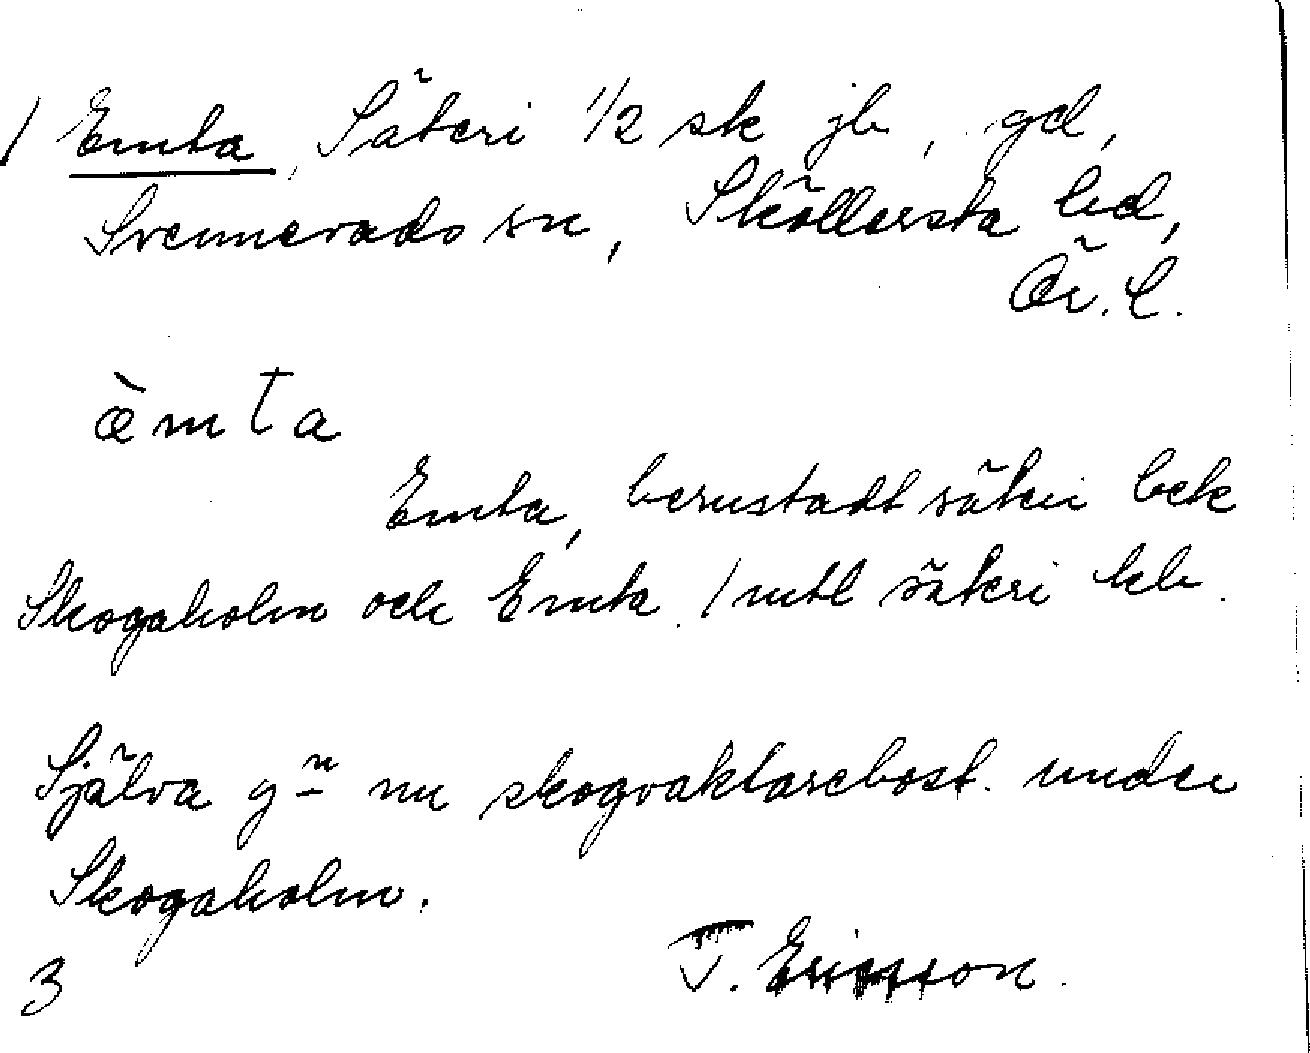 / Emta, Säteri 1/2 sk jb, gd,
Svennevads sn, Sköllersta hd,
Ör. l.
æ̀mta
Emta, berustadt säteri bek
Skogaholm och Emta. 1 mtl säteri kb.
Själva gn nu skogvaktarebost. under
Skogaholm.
3 J. Ericsson.